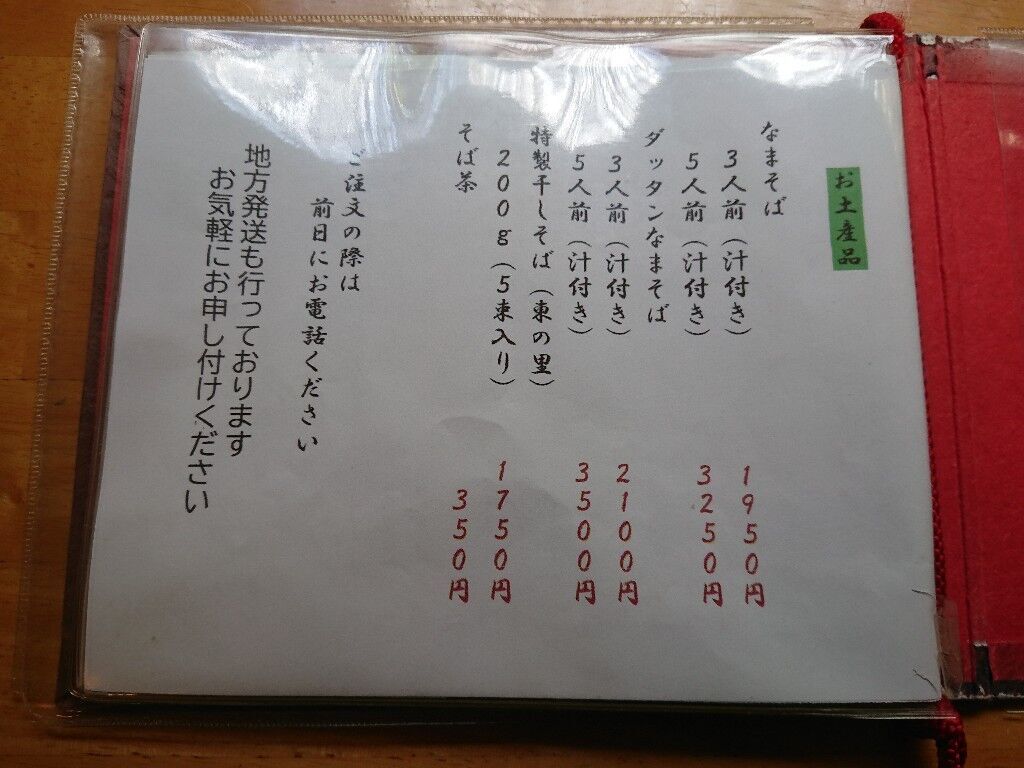 お土産品
なまそば
3人前(汁付き) 1950円
5人前(汁付き) 3250円
ダッタンなまそば
3人前(汁付き) 2100円
5人前(汁付き) 3500円
特製干しそば(東の里)
200g(5束入り) 1750円
そば茶 350円
ご注文の際は
前日にお電話ください
地方発送も行っております
お気軽にお申し付けください